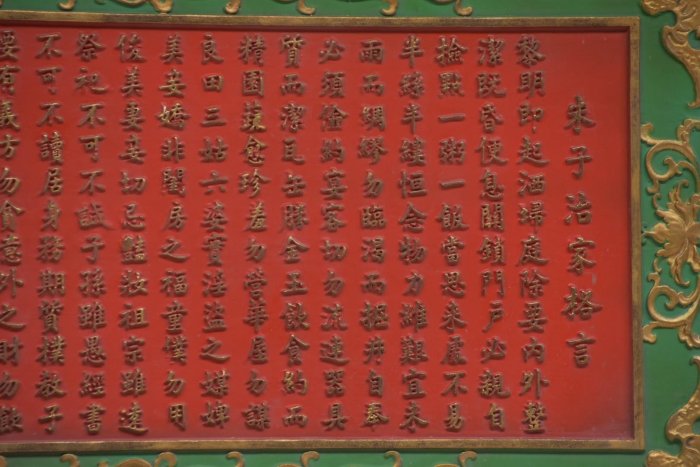 朱子治家格言
黎明即起洒埽庭除要內外整
潔既昏便息關鎖門戶必親自
撿點一粥一飯當思來處不易
半絲半縷恒念物力維艱宜未
雨而綢繆勿臨渴而掘井自奉
必須儉約宴客切勿流連器具
質而潔瓦缶勝金玉飲食約而
精園蔬愈珍羞勿營華屋勿謀
良田三姑六婆實淫盜之媒婢
美妾嬌非閨房之福童僕勿用
佳美妻妾切忌豔妝祖宗雖遠
祭祀不可不誠子孫雖愚經書
不可不讀居身務期質樸教子
要有義方勿貪意外之財勿飲